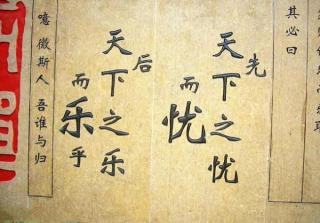 其必曰
先天下之忧
而忧
后天下之乐
而乐乎
噫微斯人吾谁与归